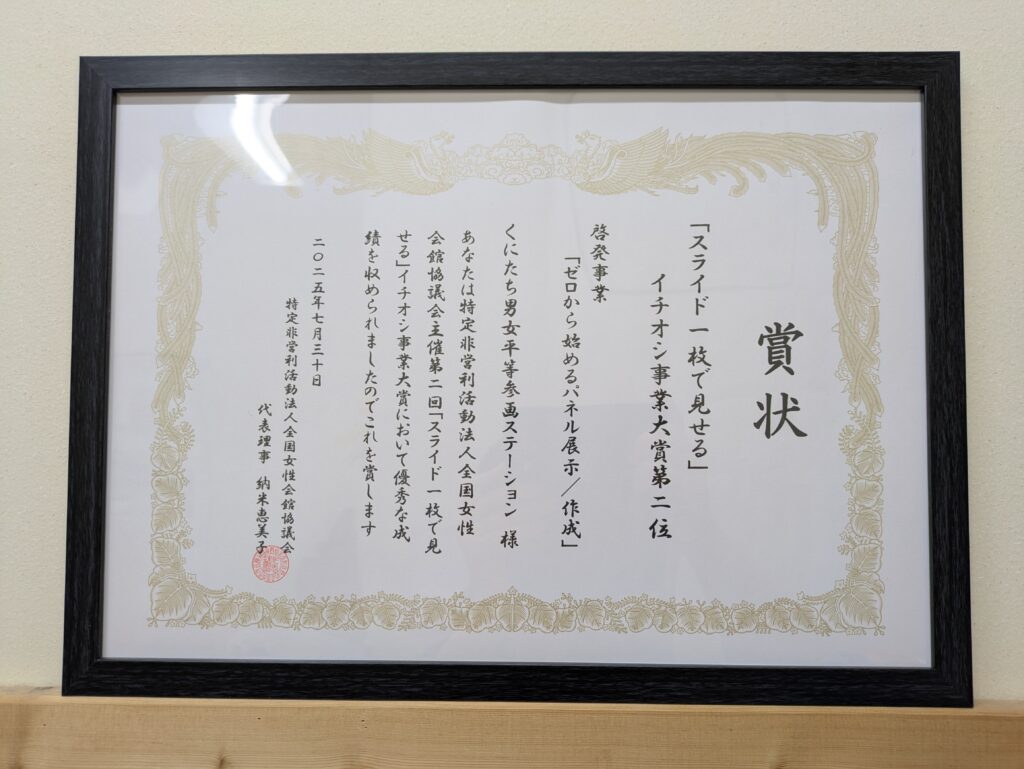 賞状
「スライド一枚で見せる」
イチオシ事業大賞第二位
啓発事業
「ゼロから始めるパネル展示／作成」
くにたち男女平等参画ステーション 様
あなたは特定非営利活動法人全国女性
会館協議会主催第二回「スライド一枚で見
せる」イチオシ事業大賞において優秀な成
績を収められましたのでこれを賞します
二〇二五年七月三十日
特定非営利活動法人全国女性会館協議会
代表理事 納米恵美子